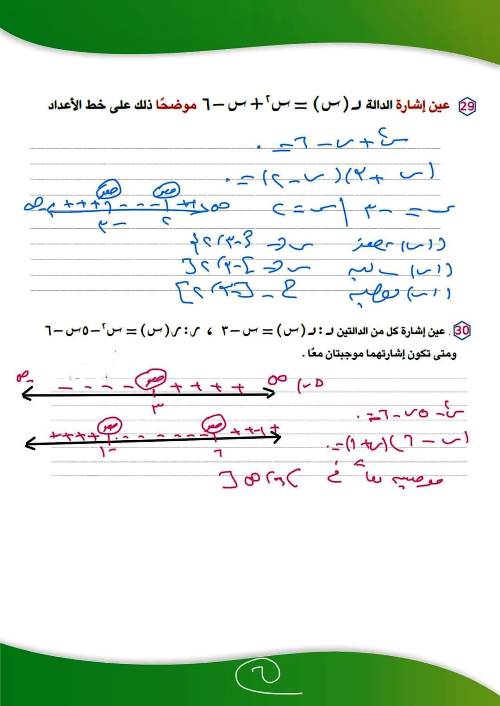 29 عين إشارة الدالة د (س) = س٢ + س − ٦ موضحًا ذلك على خط الأعداد
س٢ + س − ٦ = ٠
(س + ٣)(س − ٢) = ٠
س = −٣ | س = ٢
−∞ +++ صفر − − − صفر ++ ∞
−٣ ٢
د(س) صفر س ∈ {−٣، ٢}
د(س) سالبة س ∈ ]−٣، ٢[
د(س) موجبة ح − [−٣، ٢]
30 . عين إشارة كل من الدالتين د : د (س) = س − ٣ ، ر : ر (س) = س٢ − ٥س − ٦
ومتى تكون إشارتهما موجبتان معًا .
−∞ − − − − صفر + + + + ∞ د(س)
٣
س٢ − ٥س − ٦ = ٠
++++ صفر − − − − − − صفر ++++
−١ ٦
(س − ٦)(س + ١) = ٠
موجبة معاً في ]٦، ∞[
٢